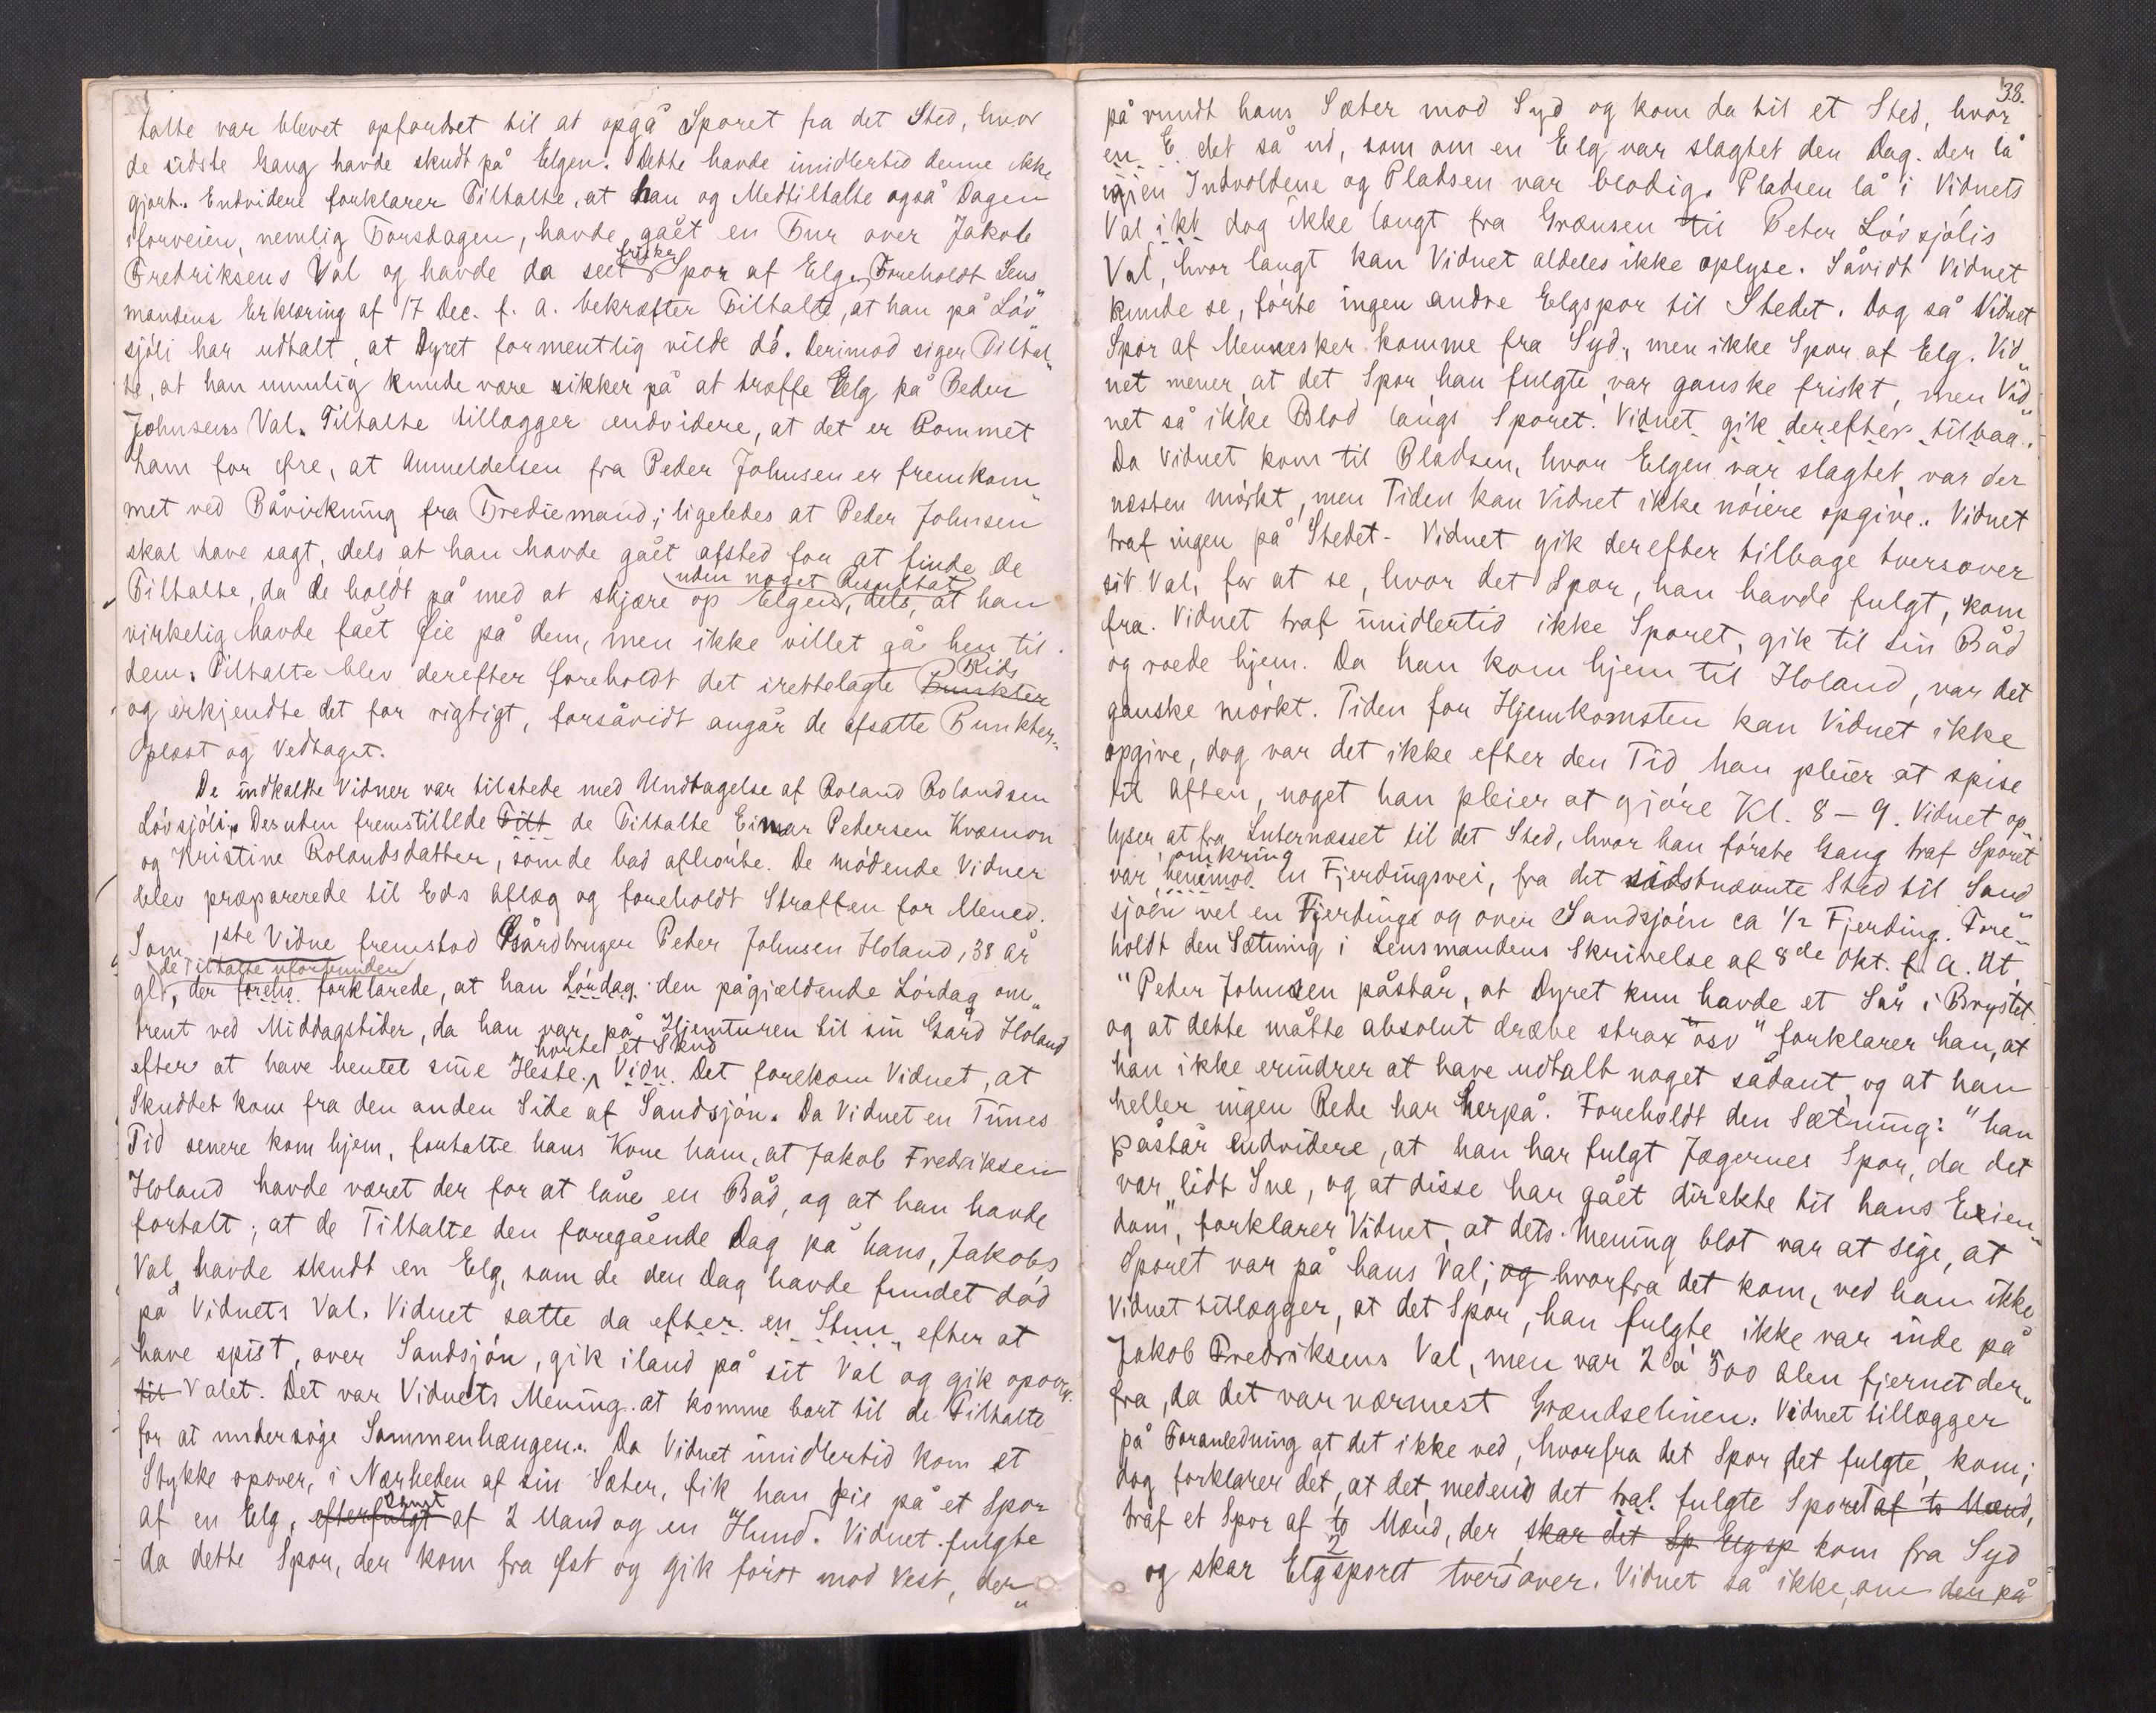 talte var blevet opfordret til at opgå Sporet fra det Sted, hvor
de sidste Gang havde skudt på Elgen. Dette havde imidlertid denne ikke
gjort. Endvidere forklarer Tiltalte, at han og Medtiltalte også Dagen
iforveien, nemlig Torsdagen, havde gået en Tur over Jakob
Fredriksens Val og havde da seet friske Spor af Elg. Foreholdt Lens„
mandens Erklæring af 17 Dec. f. a. bekræfter Tiltalte, at han på Löv„
sjöli har udtalt, at Dyret formentlig vilde dö. Derimod siger Tiltal„
te, at han umulig kunde være sikker på at træffe Elg på Peder
Johnsens Val. Tiltalte tillægger endvidere, at det er kommet
ham for Øre, at Anmeldelsen fra Peder Johnsen er fremkom„
met ved Påvirkning fra Trediemand; ligeledes at Peder Johnsen
skal have sagt, dels at han havde gået afsted for at finde de
Tiltalte, da de holdt på med at skjære op Elgen, uden noget Resultat, dels, at han
virkelig havde fået Øie på dem, men ikke villet gå hen til
dem. Tiltalte blev derefter foreholdt det irettelagte Rids Punkter
og erkjendte det for rigtigt, forsåvidt angår de afsatte Punkter.
Oplæst og Vedtaget.
De indkaldte Vidner var tilstede med Undtagelse af Roland Rolandsen
Lövsjöli. Desuden fremstillede Tilt de Tiltalte Einar Petersen Kvæmon
og Kristine Rolandsdatter, som de bad afhörte. De mödende Vidner
blev præparerede til Eds Aflæg og foreholdt Straffen for Mened.
Som 1ste Vidne fremstod Gårdbruger Peder Johnsen Holand, 38 år
gl., de Tiltalte uforbunden, der foreho. forklarede, at han Lördag den pågjældende Lördag om„
trent ved Middagstider, da han var på Hjemturen til sin Gård Holand
efter at have hentet sine Heste, hörte et Skud Vidn. Det forekom Vidnet, at
Skuddet kom fra den anden Side af Sandsjön. Da Vidnet en Times
Tid senere kom hjem, fortalte hans Kone ham, at Jakob Fredriksen
Holand havde været der for at låne en Båd, og at han havde
fortalt, at de Tiltalte den foregående Dag på hans, Jakobs
Val, havde skudt en Elg, som de den Dag havde fundet död
på Vidnets Val. Vidnet satte da efter en Stun„ efter at
have spist, over Sandsjön, gik iland på sit Val og gik opover
til Valet. Det var Vidnets Mening at komme bort til de Tiltalte
for at undersöge Sammenhængen. Da Vidnet imidlertid kom et
Stykke opover, i Nærheden af sin Sæter, fik han Øie på et Spor
af en Elg, efterfulgt samt af 2 Mand og en Hund. Vidnet fulgte
da dette Spor, der kom fra Øst og gik först mod Vest, der„
38.
på rundt hans Sæter mod Syd og kom da til et Sted, hvor
en E. det så ud, som om en Elg var slagtet den Dag. Der lå
igjen Indvoldene og Pladsen var blodig. Pladsen lå i Vidnets
Val ikk dog ikke langt fra Grænsen til Peter Lövsjölis
Val, hvor langt kan Vidnet aldeles ikke oplyse. Såvidt Vidnet
kunde se, förte ingen andre Elgspor til Stedet. Dog så Vidnet
Spor af Mennesker komme fra Syd, men ikke Spor af Elg. Vid„
net mener, at det Spor, han fulgte, var ganske friskt, men Vid„
net så ikke Blod langs Sporet. Vidnet gik derefter tilbaa.
Da Vidnet kom til Pladsen, hvor Elgen var slagtet, var der
næsten mörkt, men Tiden kan Vidnet ikke nöiere opgive. Vidnet
traf ingen på Stedet. Vidnet gik derefter tilbage tversover
sit Val, for at se, hvor det Spor, han havde fulgt, kom
fra. Vidnet traf imidlertid ikke Sporet, gik til sin Båd
og roede hjem. Da han kom hjem til Holand, var det
ganske mörkt. Tiden for Hjemkomsten kan Vidnet ikke
opgive, dog var det ikke efter den Tid han pleier at spise
til Aften, noget han pleier at gjöre Kl. 8 – 9. Vidnet op„
lyser at fra Luternæsset til det Sted, hvor han förste Gang traf Sporet
var omkring henimod en Fjerdingsvei, fra det sidstnævnte Sted til Sand
sjoen vel en Fjerdings og over Sandsjöen ca 1/2 Fjerding. Fore„
holdt den Sætning i Lensmandens Skrivelse af 8de Okt. f. A. At
"Peder Johnsen påstår, at Dyret kun havde et Sår i Brystet
og at dette måtte absolut dræbe strax osv" forklarer han, at
han ikke erindrer at have udtalt noget sådant, og at han
heller ingen Rede har herpå. Foreholdt den Sætning: "han
påstår endvidere, at han har fulgt Jægernes Spor, da det
var lidt Sne, og at disse har gået direkte til hans Eien„
dom", forklarer Vidnet, at dets Mening blot var at sige, at
Sporet var på hans Val; og hvorfra det kom, ved han ikke
Vidnet tillægger, at det Spor, han fulgte ikke var inde på
Jakob Fredriksens Val, men var 2 à 300 Alen fjernet der„
fra, da det var nærmest Grændselinien. Vidnet tillægger
på Foranledning at det ikke ved, hvorfra det Spor det fulgte, kom;
dog forklarer det, at det, medens det traf. fulgte Sporet af to Mænd,
traf et Spor af to 2 Mænd, der skar det Sp Elgsp kom fra Syd
og skar Elgsporet tversover. Vidnet så ikke, om den på